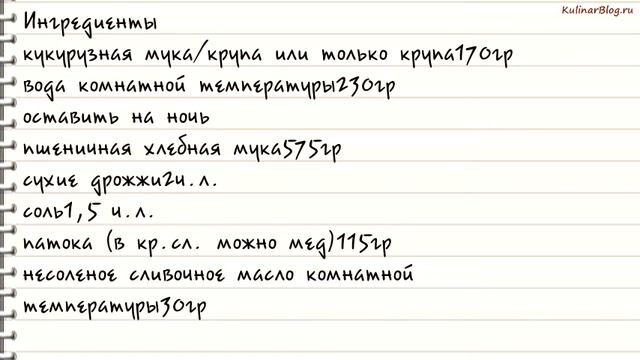 KulinarBlog.ru
Ингредиенты
кукурузная мука/крупа или только крупа170гр
вода комнатной температуры230гр
оставить на ночь
пшеничная хлебная мука575гр
сухие дрожжи2ч.л.
соль1,5 ч.л.
патока (в кр.сл. можно мед)115гр
несоленое сливочное масло комнатной
температуры30гр